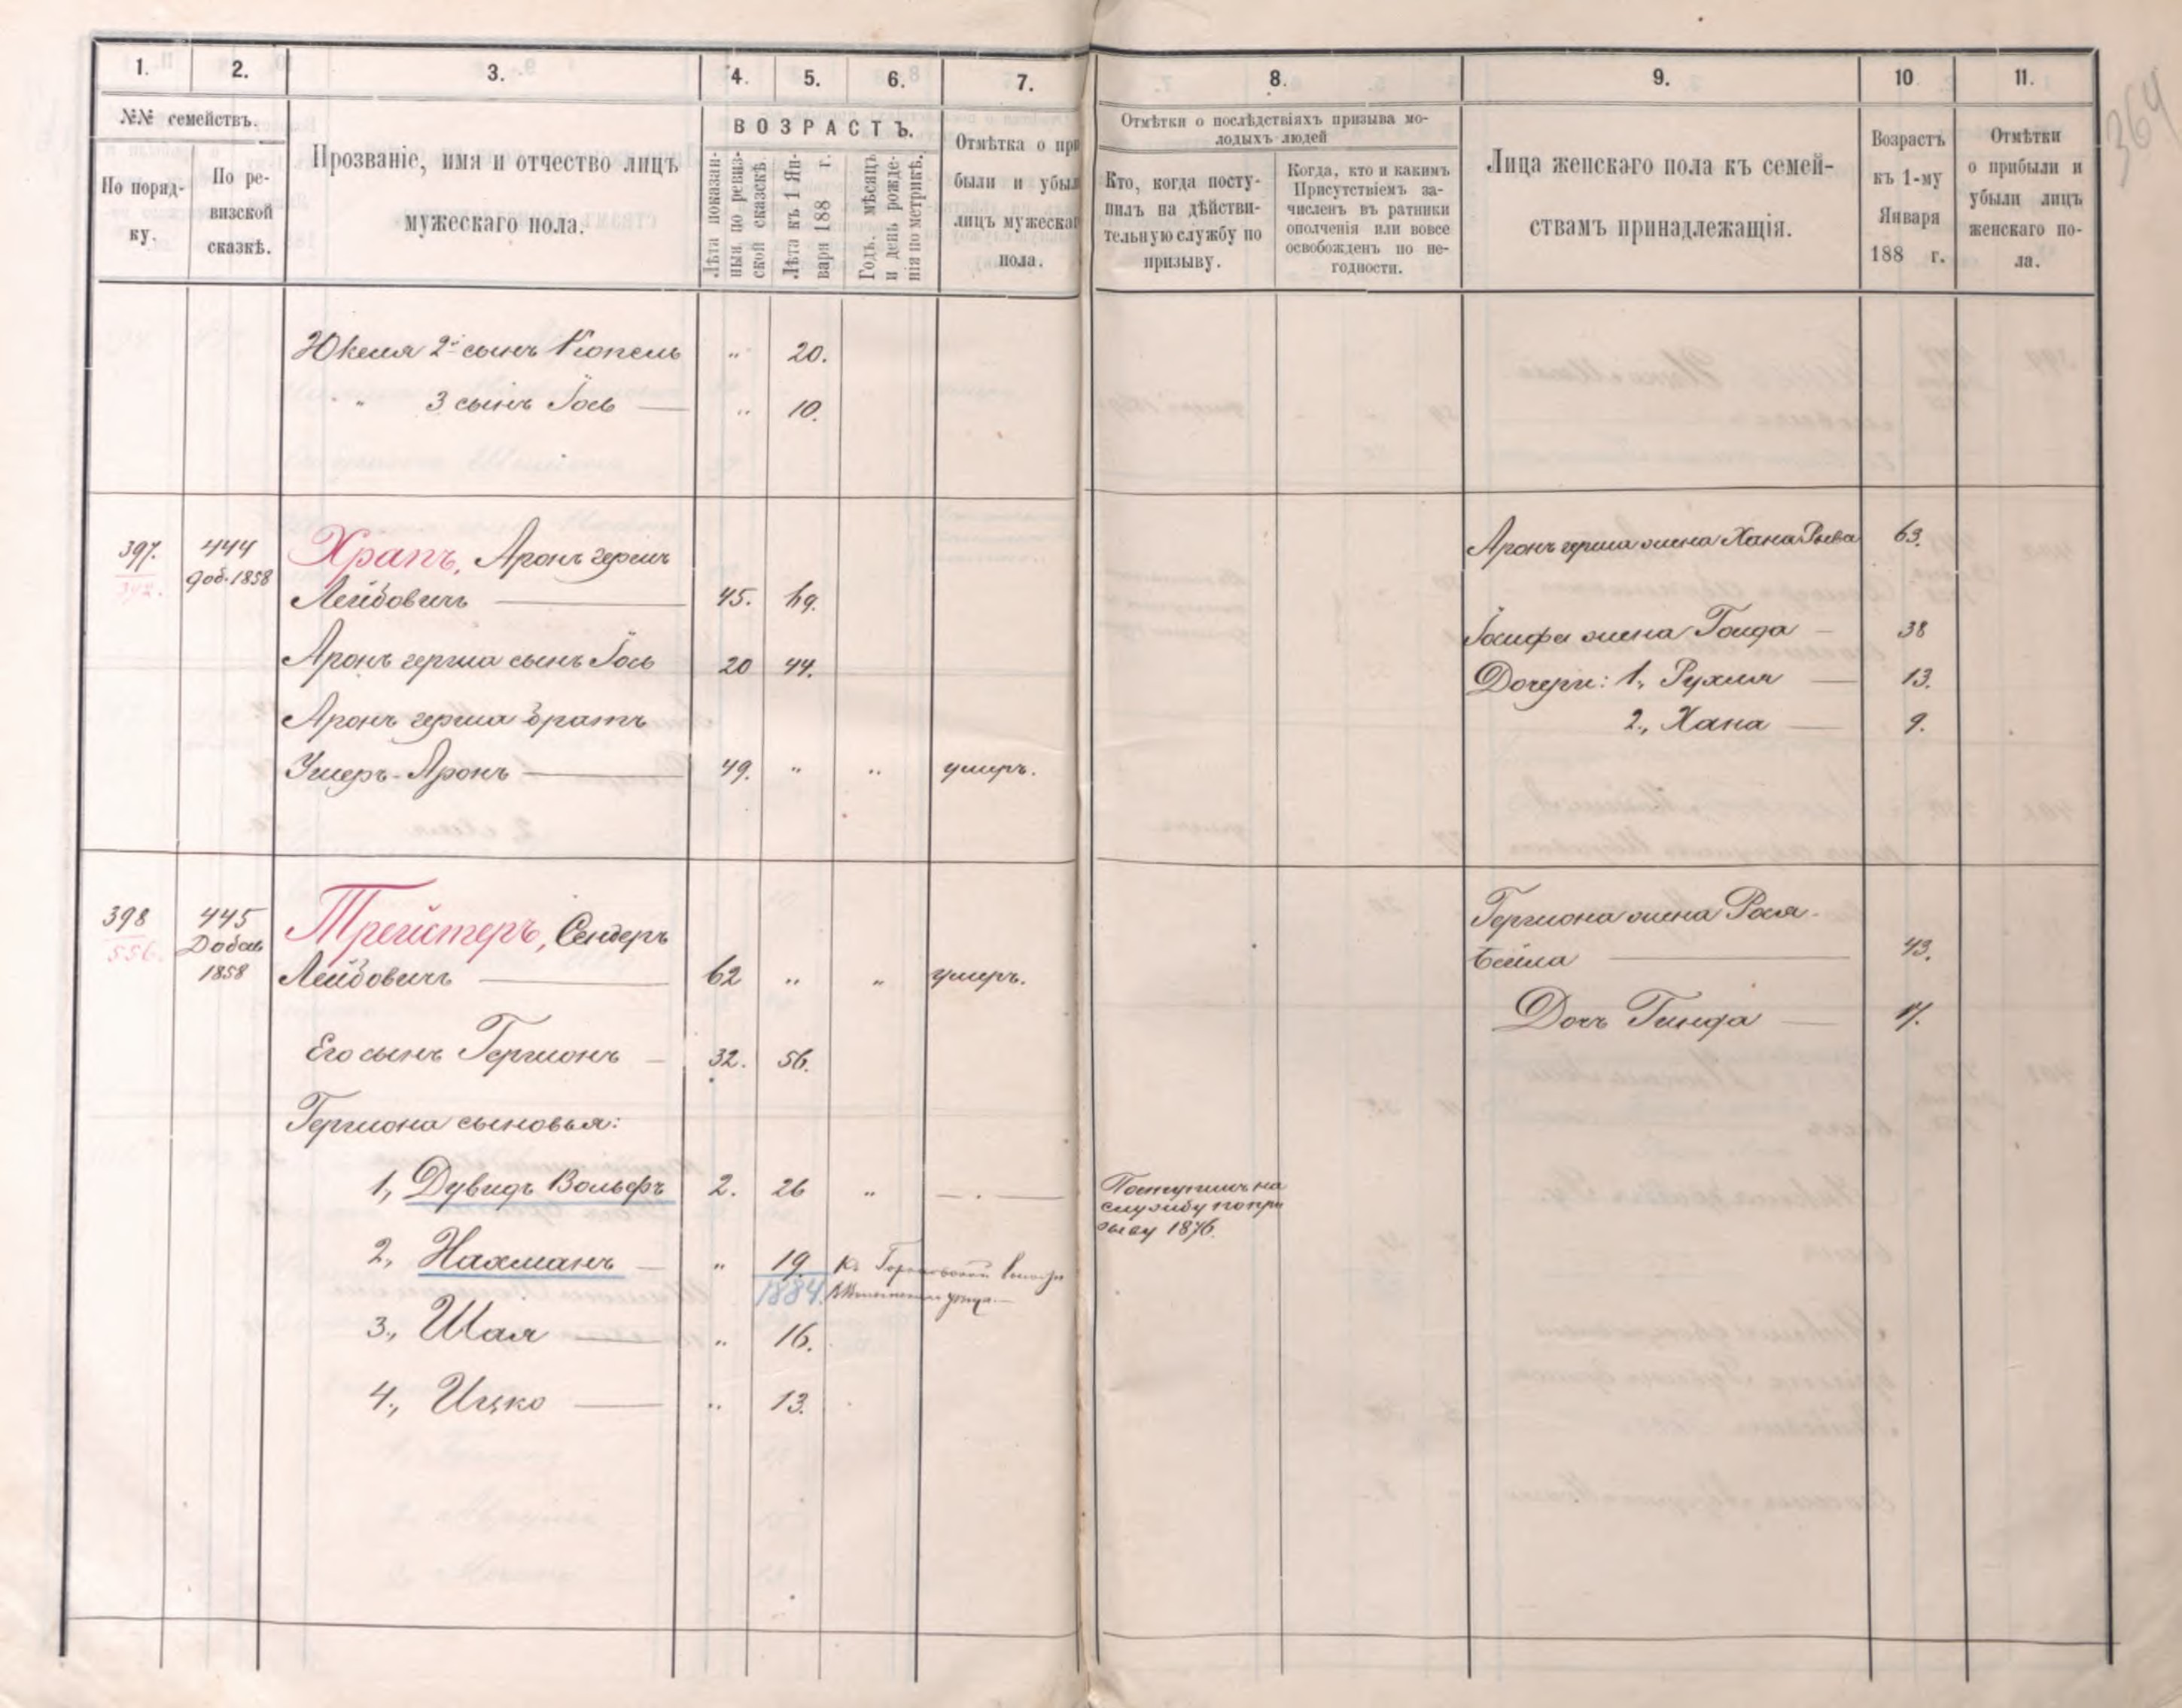 364
1. 2. 3. 4. 5. 6. 7. 8. 9. 10 11.
№№ семействъ.
По поряд-
ку.
По ре-
визской
сказкѣ.
Прозваніе, имя и отчество лицъ
мужескаго пола.
ВОЗРАСТЪ.
Лѣта показан-
ныя по ревиз-
ской сказкѣ.
Лѣта къ 1 Ян-
варя 188 г.
Годъ, мѣсяцъ
и день рожде-
нія по метрикѣ.
Отмѣтка о при
были и убыл
лицъ мужескаг
пола.
Отмѣтки о послѣдствіяхъ призыва мо-
лодыхъ людей
Кто, когда посту-
пилъ на дѣйстви-
тельную службу по
призыву.
Когда, кто и какимъ
Присутствіемъ за-
численъ въ ратники
ополченія или вовсе
освобожденъ по не-
годности.
Лица женскаго пола къ семей-
ствамъ принадлежащія.
Возрастъ
къ 1-му
Января
188 г.
Отмѣтки
о прибыли и
убыли лицъ
женскаго по-
ла.
Юкеля 2й сынъ Копель " 20.
" 3 сынъ Іось — " 10.
397. 444 Храпъ, Аронъ гершъ
342. доб. 1858
Лейбовичъ — 45. 69.
Аронъ герша сынъ Іось 20 44.
Аронъ герша братъ
Умеръ-Аронъ — 49. " " умеръ.
Аронъ герша жена Хана Рива 63.
Іосифа жена Голда — 38
Дочери: 1, Рухля — 13.
2, Хана — 9.
398 445 Трейстеръ, Сендеръ
556. Добав
1858 Лейбовичъ — 62 " " умеръ.
Его сынъ Гершонъ — 32. 56.
Гершона сыновья:
1, Дувидъ Вольфъ 2. 26 " — . —
Поступилъ на
службу по при
зыву 1876.
2, Нахманъ — " 19.
1884.
3, Шая — " 16.
4, Ицко — " 13.
Гершона жена Рося-
Бейла — 43.
Дочь Гинда — 17.